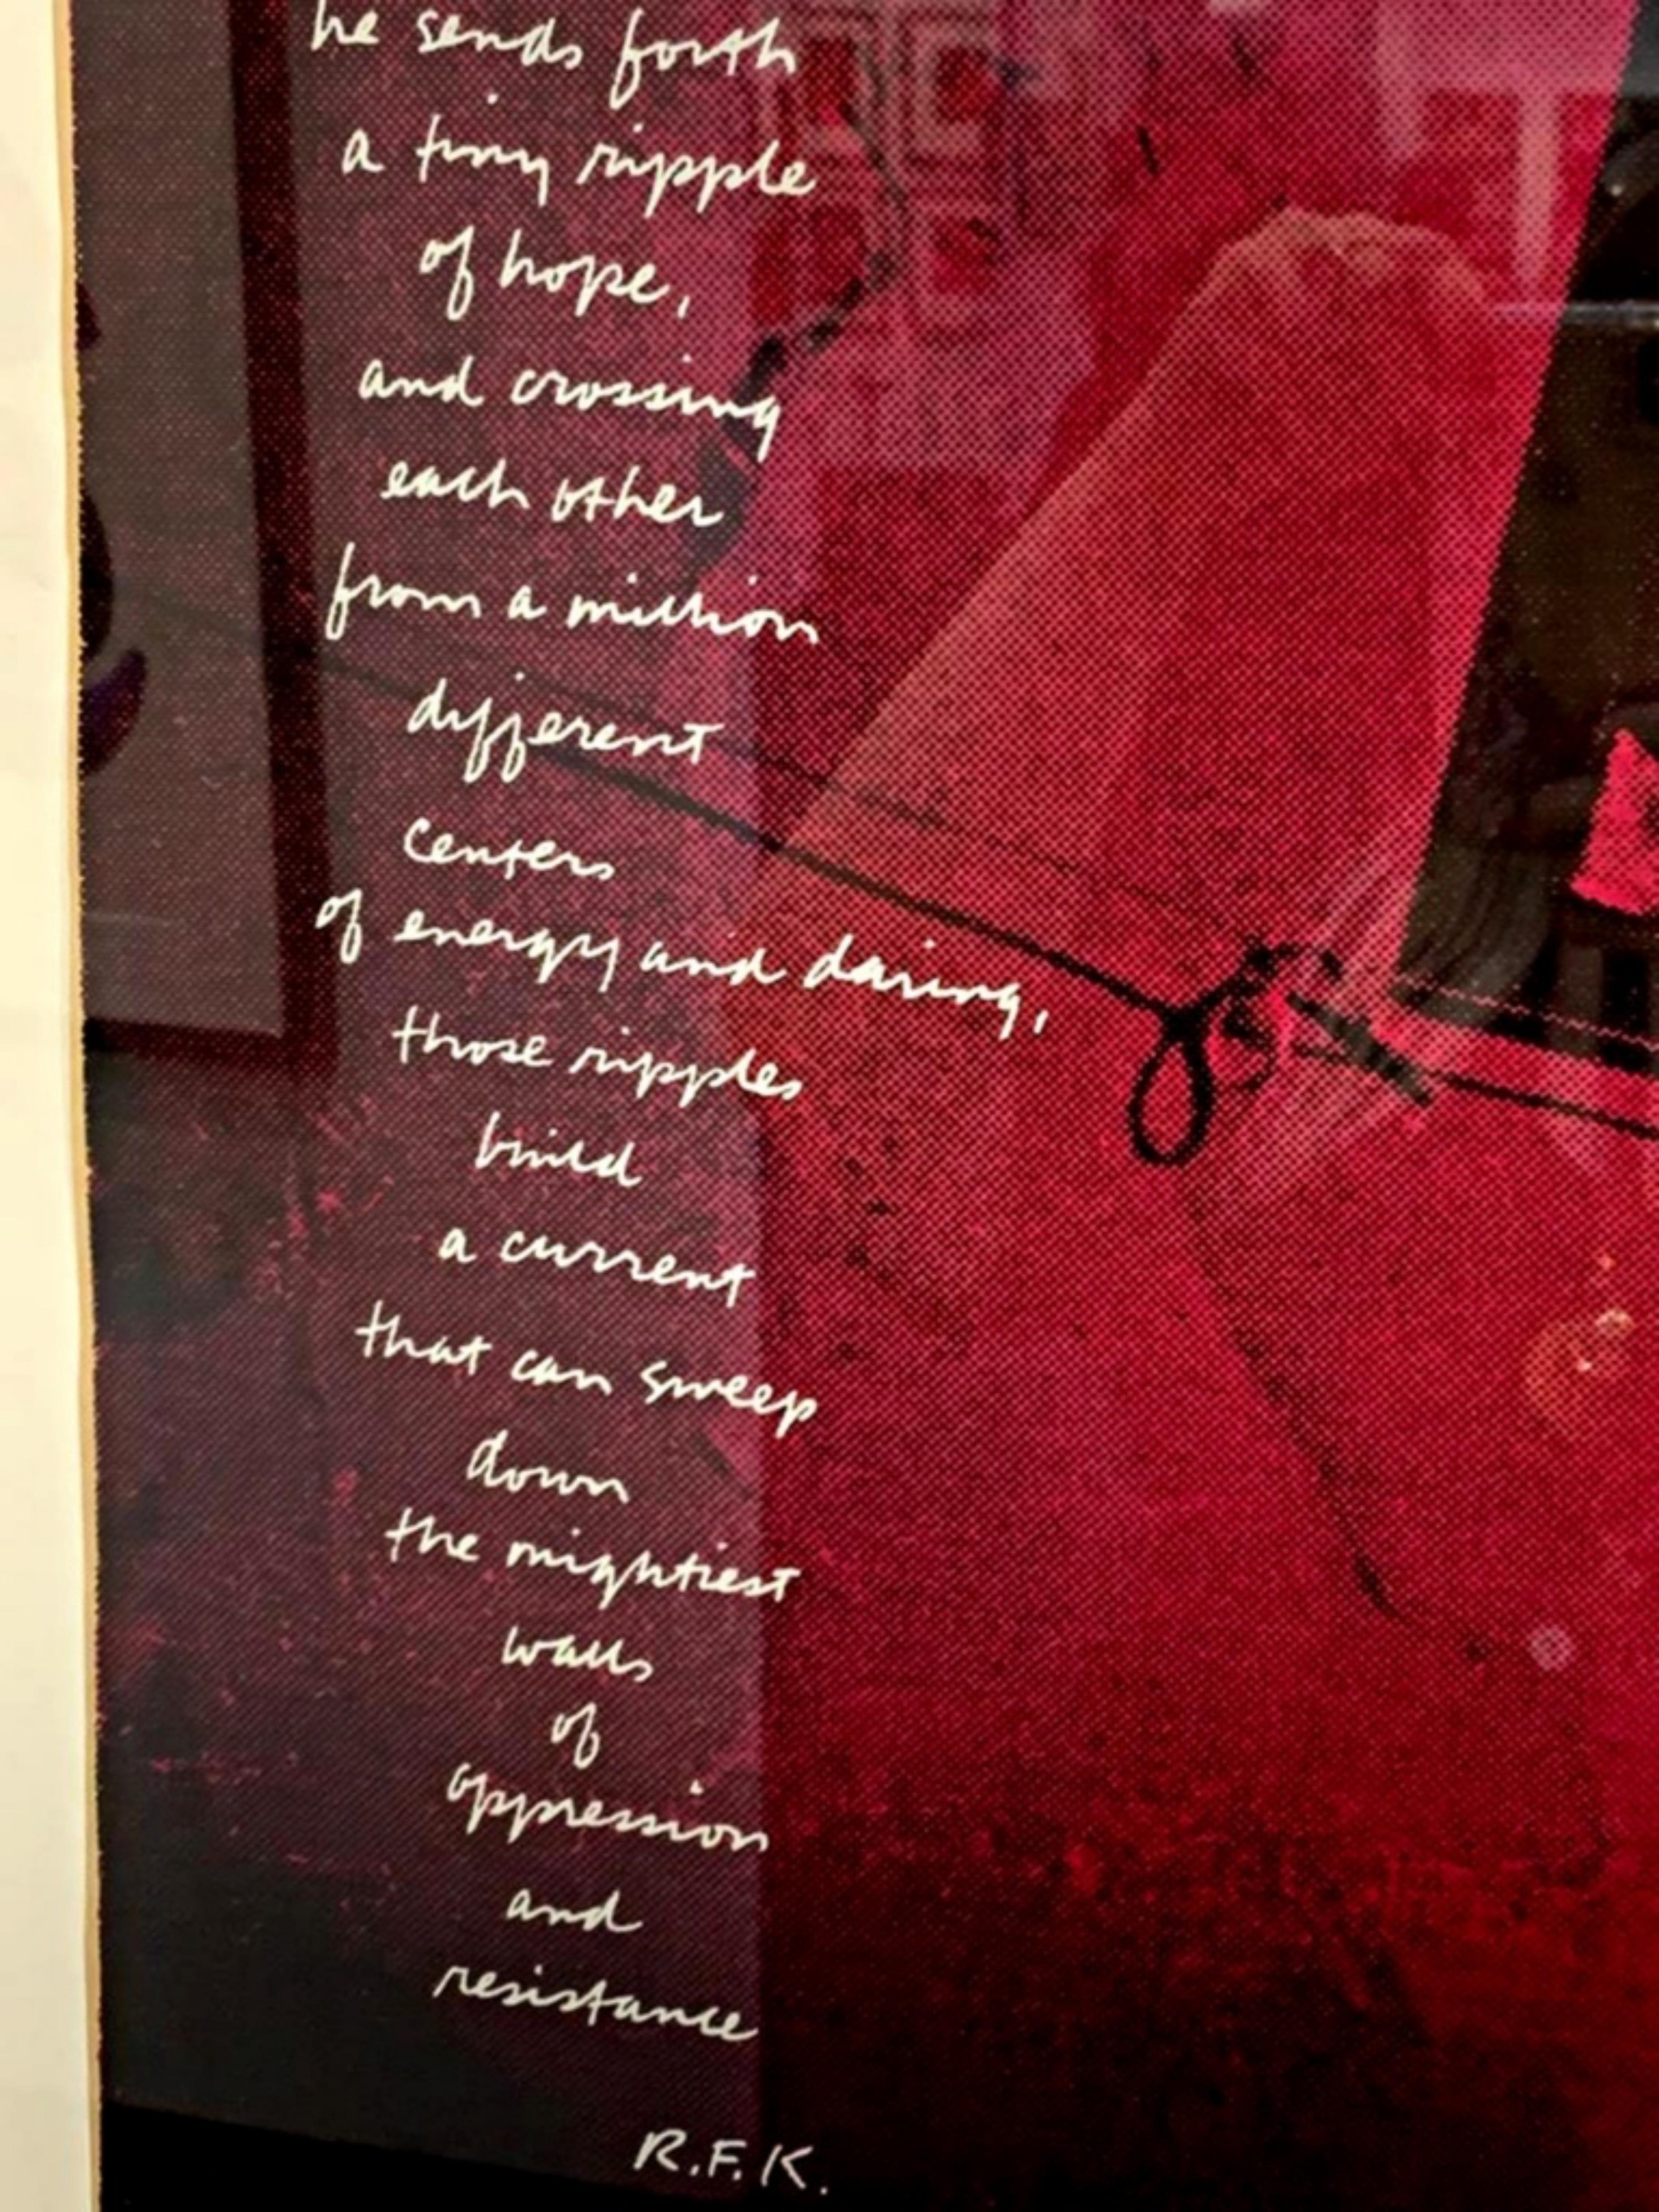 he sends forth
a tiny ripple
of hope,
and crossing
each other
from a million
different
centers
of energy and daring,
those ripples
build
a current
that can sweep
down
the mightiest
walls
of
oppression
and
resistance
R.F.K.